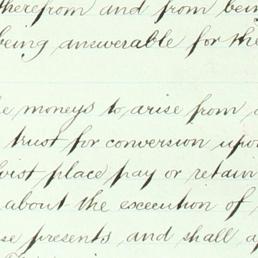 therefrom and from bein
being answerable for the
moneys to arise from
trust for conversion upo
place pay or retain
about the execution of
se presents and shall a